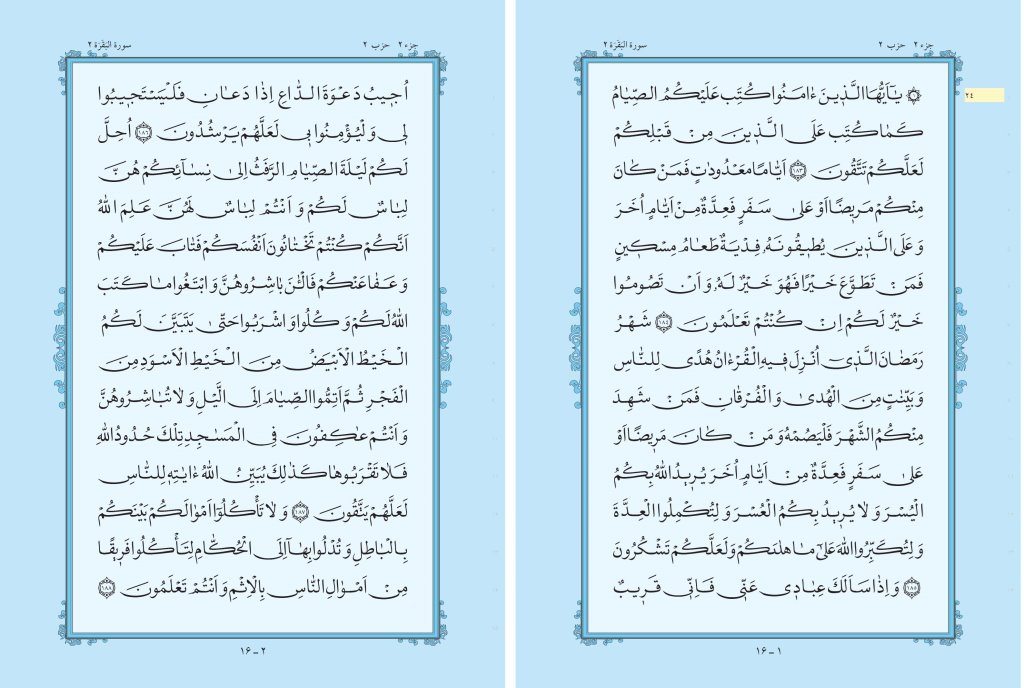 جزء ٢ حزب ٢
سورة البَقَرَة ٢
٢٤
يٰٓاَيُّهَا الَّذينَ ءٰامَنُوا كُتِبَ عَلَيْكُمُ الصِّيٰامُ
كَمٰا كُتِبَ عَلَى الَّذينَ مِنْ قَبْلِكُمْ
لَعَلَّكُمْ تَتَّقُونَ ١٨٣ اَيّٰامًا مَعْدُودٰاتٍ فَمَنْ كٰانَ
مِنْكُمْ مَريضًا اَوْ عَلىٰ سَفَرٍ فَعِدَّةٌ مِنْ اَيّٰامٍ اُخَرَ
وَ عَلَى الَّذينَ يُطيقُونَهُ فِدْيَةٌ طَعٰامُ مِسْكينٍ
فَمَنْ تَطَوَّعَ خَيْرًا فَهُوَ خَيْرٌ لَهُ وَ اَنْ تَصُومُوا
خَيْرٌ لَكُمْ اِنْ كُنْتُمْ تَعْلَمُونَ ١٨٤ شَهْرُ
رَمَضٰانَ الَّذى اُنْزِلَ فيهِ الْقُرْءٰانُ هُدًى لِلنّٰاسِ
وَ بَيِّنٰتٍ مِنَ الْهُدىٰ وَ الْفُرْقٰانِ فَمَنْ شَهِدَ
مِنْكُمُ الشَّهْرَ فَلْيَصُمْهُ وَ مَنْ كٰانَ مَريضًا اَوْ
عَلىٰ سَفَرٍ فَعِدَّةٌ مِنْ اَيّٰامٍ اُخَرَ يُريدُ اللّٰهُ بِكُمُ
الْيُسْرَ وَ لٰا يُريدُ بِكُمُ الْعُسْرَ وَ لِتُكْمِلُوا الْعِدَّةَ
وَ لِتُكَبِّرُوا اللّٰهَ عَلىٰ مٰا هَدىٰكُمْ وَ لَعَلَّكُمْ تَشْكُرُونَ
١٨٥ وَ اِذٰا سَاَلَكَ عِبٰادى عَنّى فَاِنّى قَريبٌ
١٦ - ١
جزء ٢ حزب ٢
سورة البَقَرَة ٢
اُجيبُ دَعْوَةَ الدّٰاعِ اِذٰا دَعٰانِ فَلْيَسْتَجيبُوا
لى وَ لْيُؤْمِنُوا بى لَعَلَّهُمْ يَرْشُدُونَ ١٨٦ اُحِلَّ
لَكُمْ لَيْلَةَ الصِّيٰامِ الرَّفَثُ اِلىٰ نِسٰٓائِكُمْ هُنَّ
لِبٰاسٌ لَكُمْ وَ اَنْتُمْ لِبٰاسٌ لَهُنَّ عَلِمَ اللّٰهُ
اَنَّكُمْ كُنْتُمْ تَخْتٰانُونَ اَنْفُسَكُمْ فَتٰابَ عَلَيْكُمْ
وَ عَفٰا عَنْكُمْ فَالْـٰٔنَ بٰاشِرُوهُنَّ وَ ابْتَغُوا مٰا كَتَبَ
اللّٰهُ لَكُمْ وَ كُلُوا وَ اشْرَبُوا حَتّىٰ يَتَبَيَّنَ لَكُمُ
الْخَيْطُ الْاَبْيَضُ مِنَ الْخَيْطِ الْاَسْوَدِ مِنَ
الْفَجْرِ ثُمَّ اَتِمُّوا الصِّيٰامَ اِلَى الَّيْلِ وَ لٰا تُبٰاشِرُوهُنَّ
وَ اَنْتُمْ عٰكِفُونَ فِى الْمَسٰجِدِ تِلْكَ حُدُودُ اللّٰهِ
فَلٰا تَقْرَبُوهٰا كَذٰلِكَ يُبَيِّنُ اللّٰهُ ءٰايٰتِهِ لِلنّٰاسِ
لَعَلَّهُمْ يَتَّقُونَ ١٨٧ وَ لٰا تَأْكُلُوٓا اَمْوٰالَكُمْ بَيْنَكُمْ
بِالْبٰاطِلِ وَ تُدْلُوا بِهٰٓا اِلَى الْحُكّٰامِ لِتَأْكُلُوا فَريقًا
مِنْ اَمْوٰالِ النّٰاسِ بِالْاِثْمِ وَ اَنْتُمْ تَعْلَمُونَ ١٨٨
١٦ - ٢